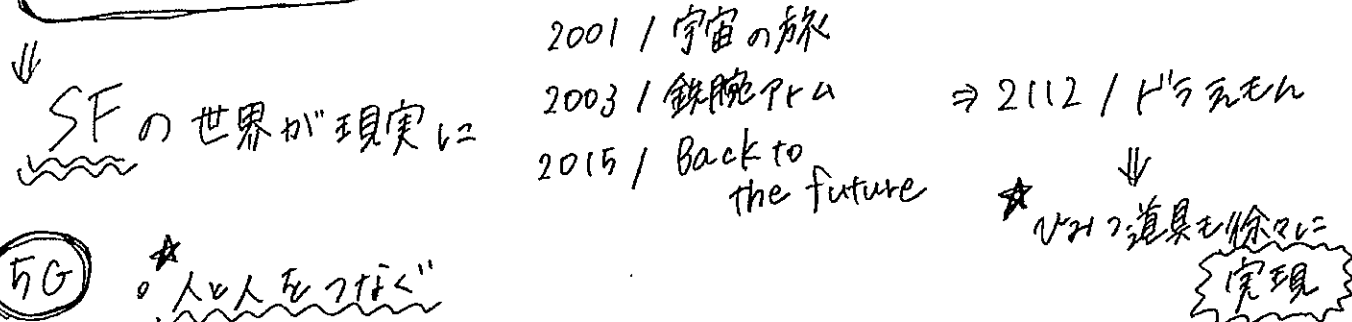 ⇓
SFの世界が現実に
2001 / 宇宙の旅
2003 / 鉄腕アトム
2015 / Back to
the future
⇒ 2112 / ドラえもん
⇓
★ ひみつ道具も徐々に
実現
5G
★
。人と人をつなぐ